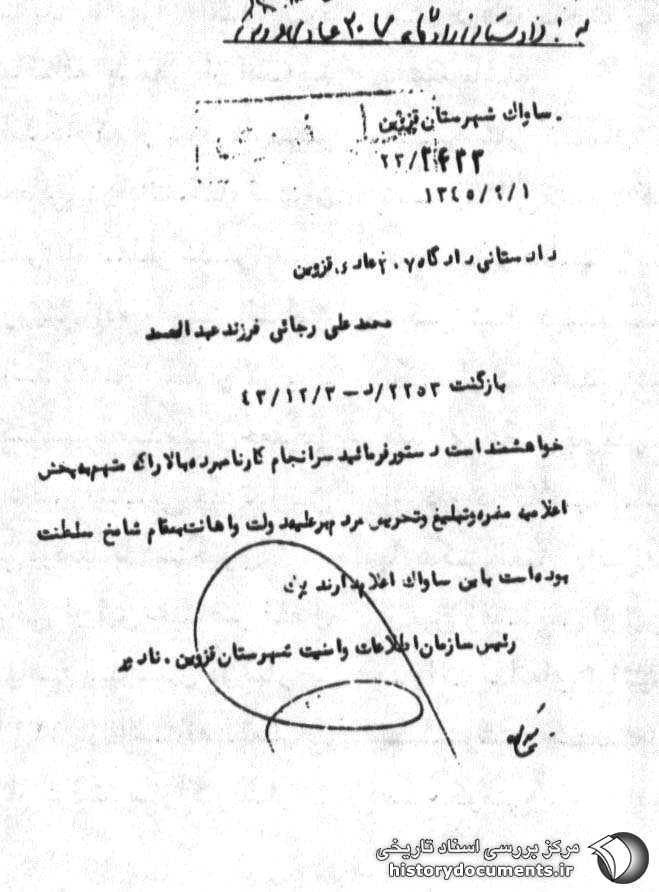 ساواک شهرستان قزوین
۱۳۴۵/۹/۱
دادستانی دادگاه ۲۰۷ عادی قزوین
محمدعلی رجائی فرزند عبدالصمد
بازگشت ۲۲۵۳/د - ۴۳/۱۲/۳
خواهشمند است دستور فرمائید سرانجام کار نامبرده بالا را که متهم به پخش
اعلامیه مضره و تبلیغ و تحریص مردم بر علیه دولت و اهانت بمقام شامخ سلطنت
بوده است باین ساواک اعلام دارند
رئیس سازمان اطلاعات و امنیت شهرستان قزوین .
مرکز بررسی اسناد تاریخی
historydocuments.ir